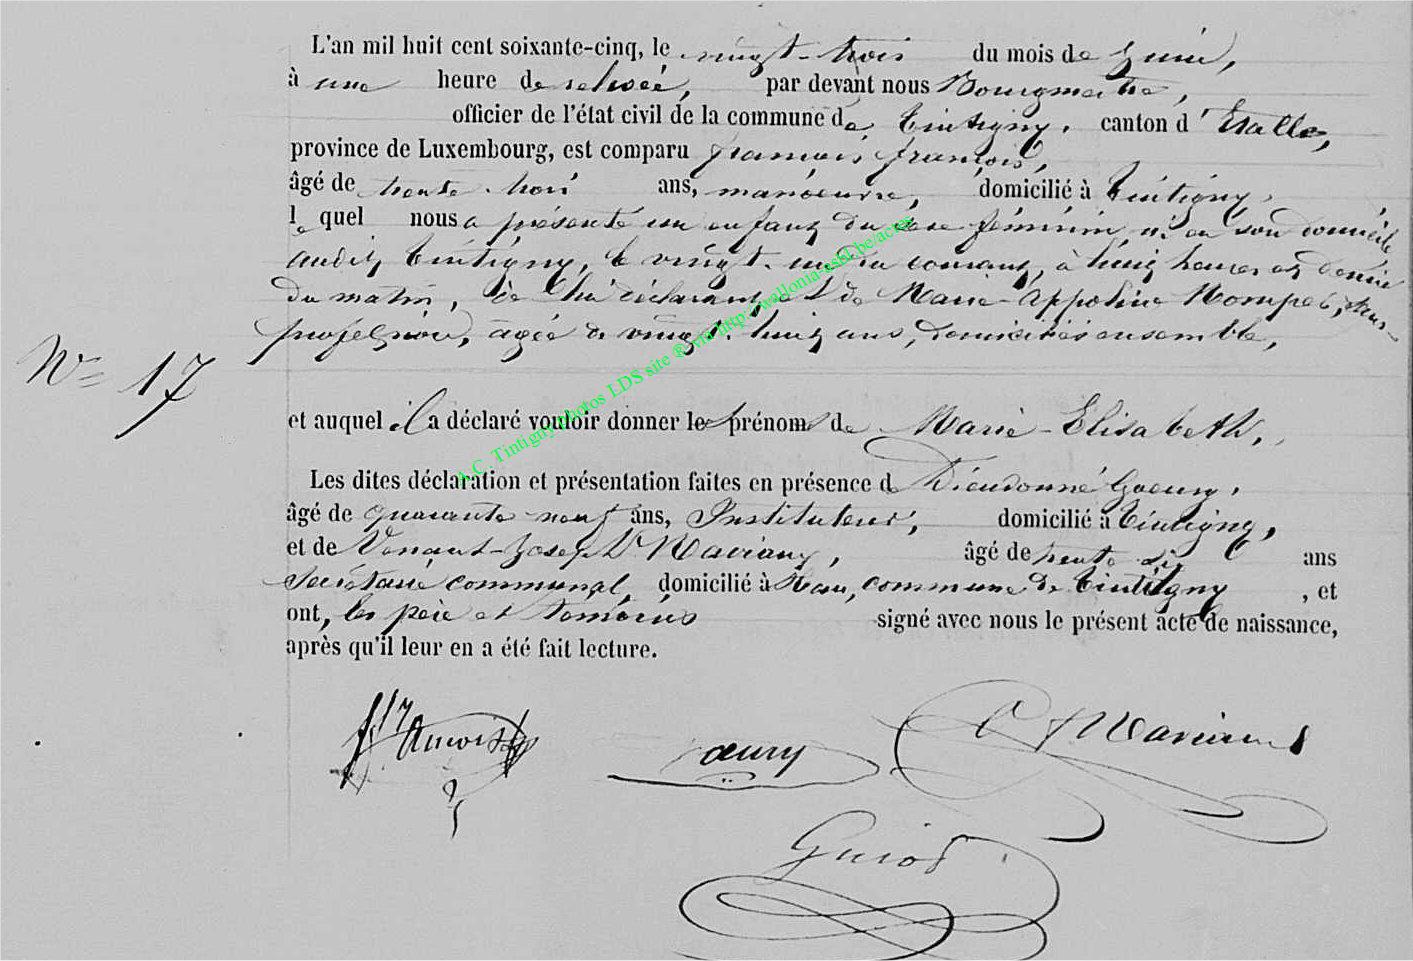 L'an mil huit cent soixante-cinq, le vingt-trois du mois de Juin,
à une heure de relevée, par devant nous Bourgmestre,
officier de l'état civil de la commune de Tintigny, canton d'Etalle,
province de Luxembourg, est comparu François François,
âgé de trente-trois ans, manoeuvre, domicilié à Tintigny,
lequel nous a présenté un enfant du sexe féminin né en son domicile
audit Tintigny, le vingt-un du courant, à huit heures et demie
du matin, de lui déclarant et de Marie-Appoline sans
profession, agée de vingt-huit ans, domiciliés ensemble,
N° 17
et auquel il a déclaré vouloir donner les prénoms de Marie-Elisabeth,
Les dites déclaration et présentation faites en présence de Dieudonné Goeury,
âgé de quarante neuf ans, Instituteur, domicilié à Tintigny,
et de Venant-Joseph Maviany, âgé de trente ans
secrétaire communal, domicilié à Han, commune de Tintigny, et
ont, les père et témoins signé avec nous le présent acte de naissance,
après qu'il leur en a été fait lecture.
A.C. Tintigny photos LDS site ® via http://wallonia-asbl.be/actes